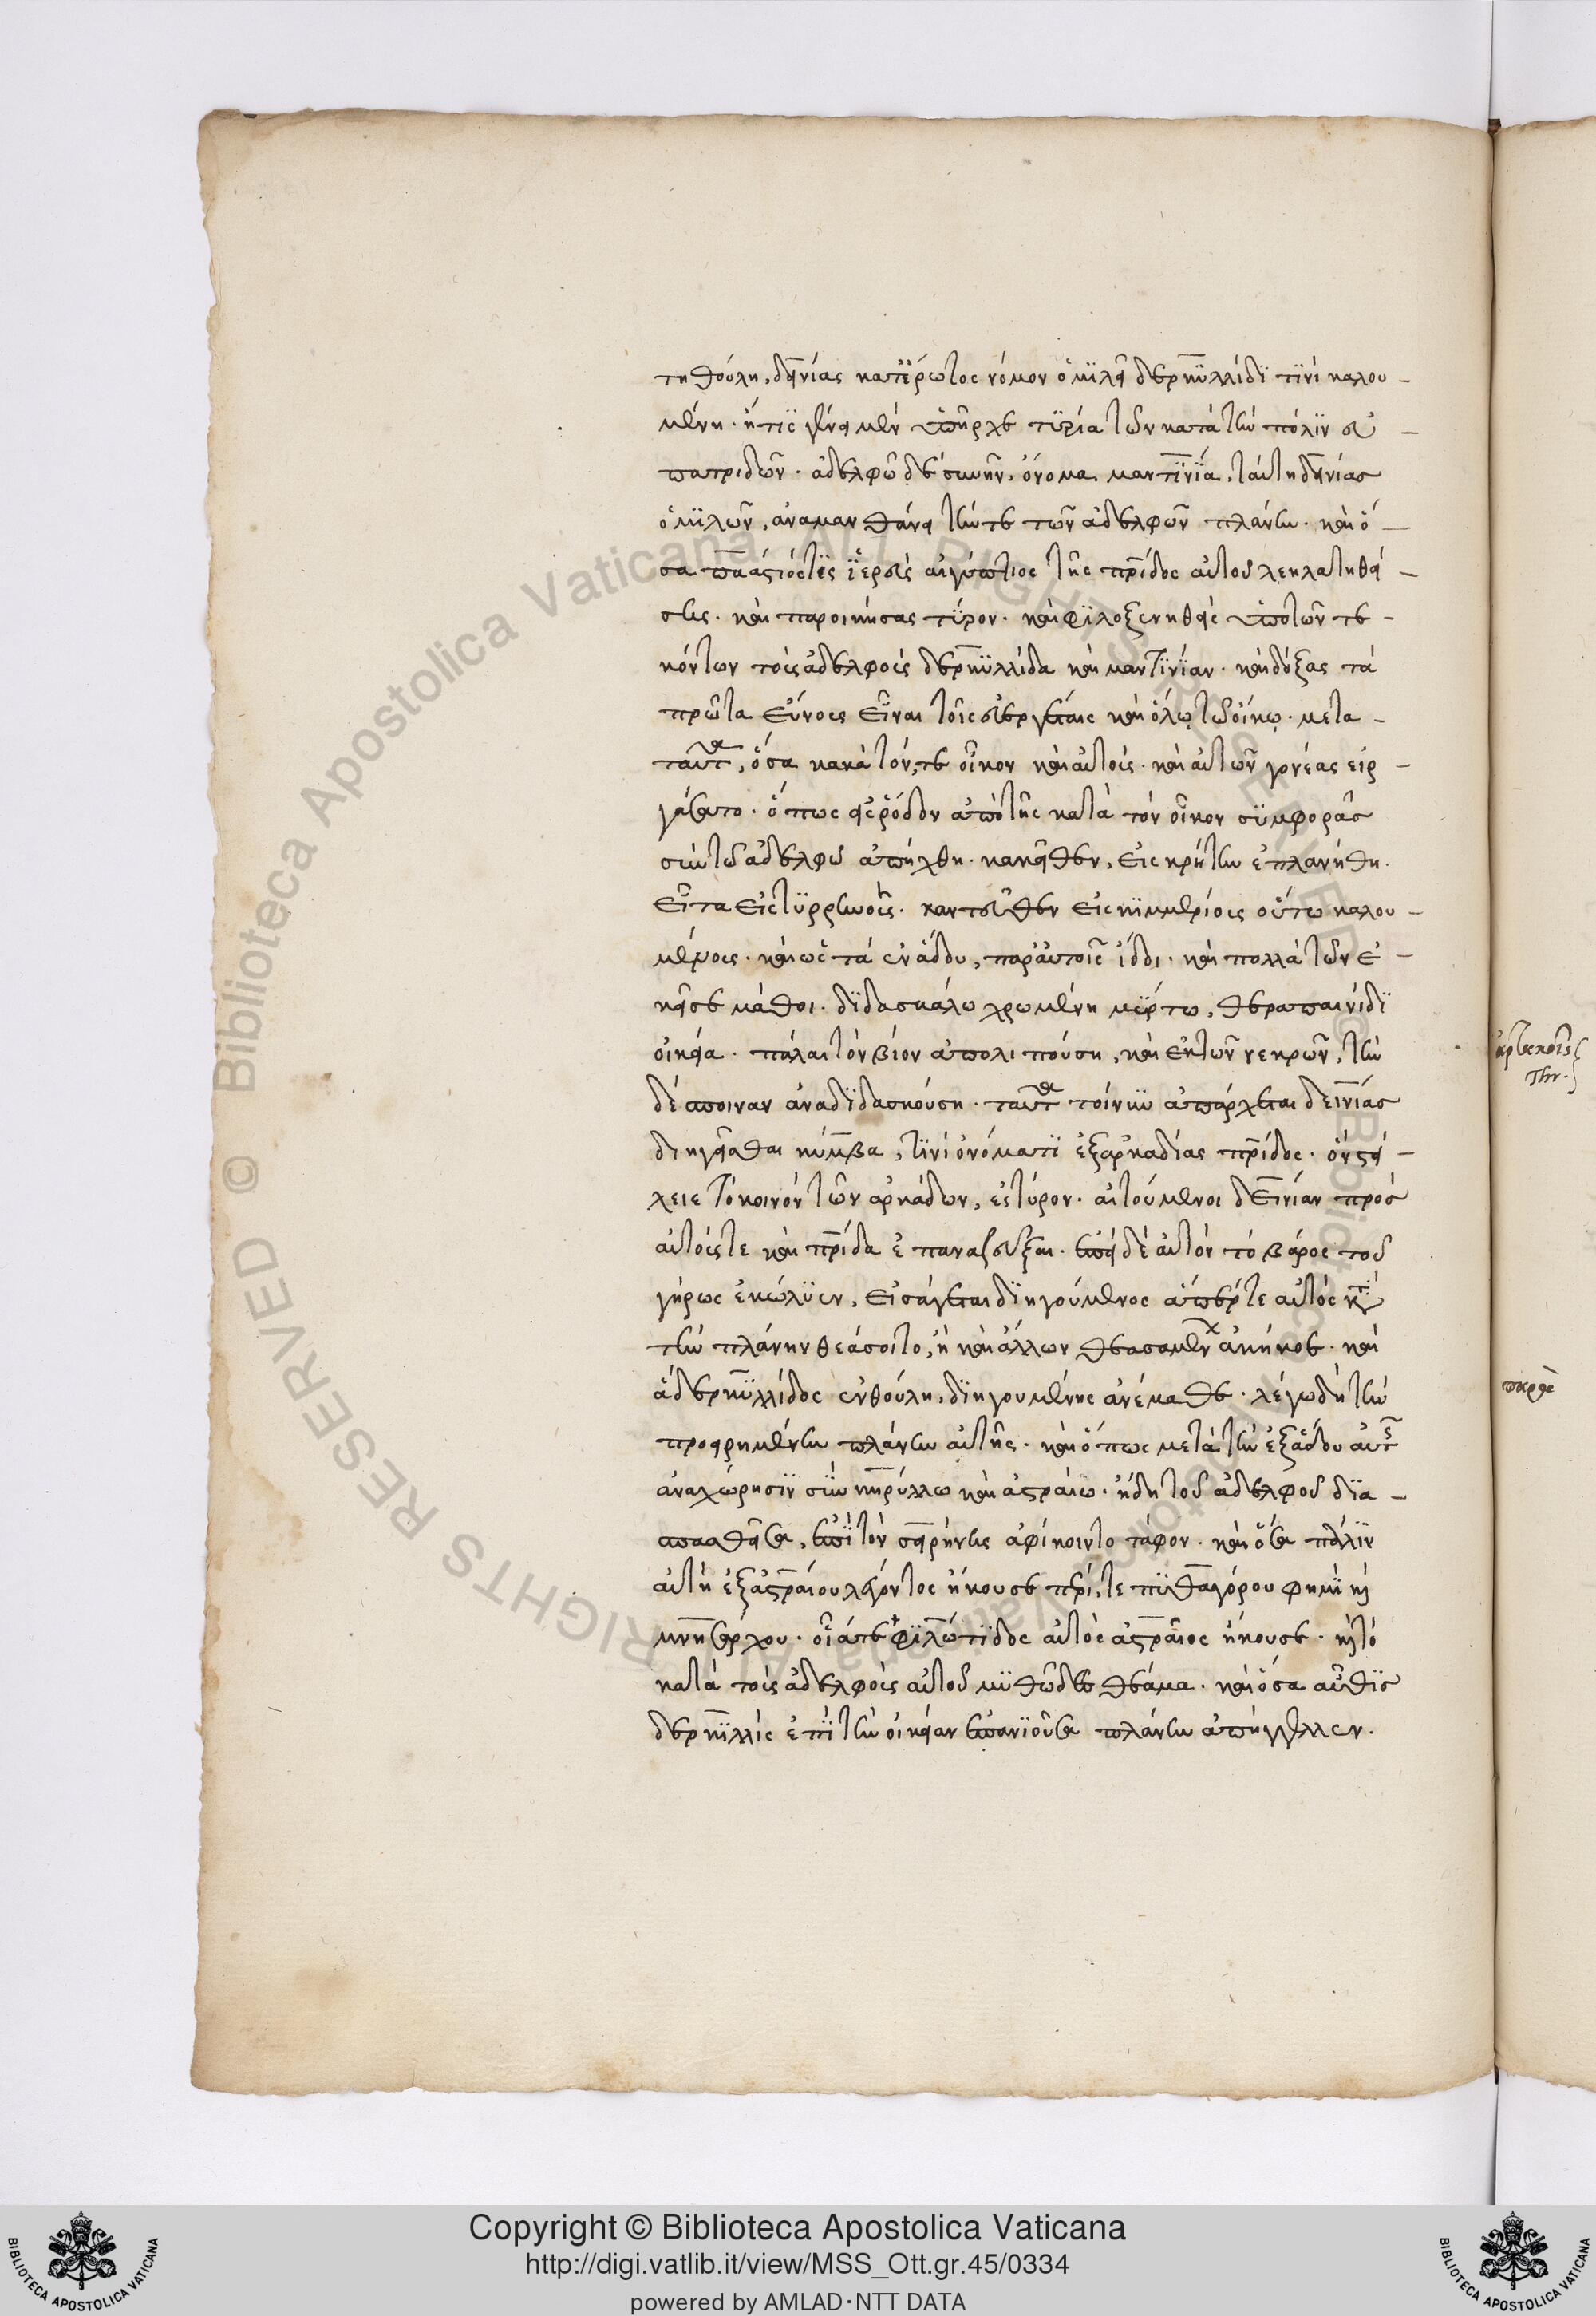 τη θούλη, δεινίας κατ' ἔρωτος νόμον ὁμιλεῖ δερκϋλλίδϊ τϊνὶ καλου-
μένη. ἥτις γένει μὲν ὑπῆρχε τϋρία τῶν κατὰ τὴν πόλϊν εὐ-
πατριδῶν. ἀδελφῶ δὲ συνῆν, ὄνομα μαντϊνία, ταύτη δεινίας
ὁμϊλῶν, ἀναμανθάνει τήν τε τῶν ἀδελφῶν πλάνην. καὶ ὅ-
σα ϊἑρεὺς αἰγύπτιος τῆς πρίδος αὐτοῦ λεηλατηθεί-
σης. καὶ παροικήσας τύρον. καὶ φϊλοξενηθεὶς ὑπὸ τῶν τε-
κόντων τοὺς ἀδελφοὺς δερκϋλλίδα καὶ μαντϊνϊαν. καὶ δόξας τὰ
πρῶτα εὔνους εἶναι τοῖς εὐεργέταις καὶ ὅλῳ τῷ οἴκῳ. μετα-
ταῦτα, ὅσα κακὰ τόν, τε οἶκον καὶ αὐτοὺς. καὶ αὐτῶν γονέας εἰρ-
γάσατο. ὅπως εἰς ῥόδον ἀπὸ τῆς κατὰ τὸν οἶκον σϋμφορᾶς
σὺν τῶ ἀδελφῶ ἀπήχθη. κακεῖθεν, εἰς κρήτην ἐπλανήθη.
εἶτα εἰς τϋρρηνούς. καντεῦθεν εἰς κϊμμερίους οὕτω καλου-
μένους. καὶ ὡς τὰ ἐν ἅδου, παρ' αὐτοῖς ἴδοι. καὶ πολλὰ τῶν ἐ-
κεῖσε μάθοι. δϊδασκάλω χρωμένη μϋρτω, θεραπαινίδϊ
οἰκεία. πάλαι τὸν βίον ἀπολιπούση, καὶ ἐκ τῶν νεκρῶν, τὴν
δέσποιναν ἀναδϊδασκούση. ταῦτα τοίνυν ἀπάρχεται δεινίας
διηγεῖσθαι κύμβα, τϊνὶ ὀνόματϊ ἐξ ἀρκαδίας πρίδος. ὃν στεί-
λειε τὸ κοινὸν τῶν ἀρκάδων, ἐς τύρον. αἰτούμενοι δεινίαν πρὸς
αὐτούς τε καὶ πρίδα ἐπαναζεῦξαι. ἐπεὶ δὲ αὐτὸν τὸ βάρος τοῦ
γήρως ἐκώλϋεν, εἰσάγεται δϊηγούμενος ἅπερ τε αὐτὸς κατὰ
τὴν πλάνην θεάσοιτο, ἢ καὶ ἄλλων θεασαμένων ἀκήκοε. καὶ
ἃ δερκϋλλίδος ἐν θούλη, δϊηγουμένης ἀνέμαθε. λέγω δὴ τὴν
προειρημένην πλάνην αὐτῆς. καὶ ὅπως μετὰ τὴν ἐξ ἅδου αὐτῆς
ἀναχώρησϊν σὺν κηρύλλω καὶ ἀστραίω. ἤδη τοῦ ἀδελφοῦ δϊα-
σπασθεῖσα, ἐπὶ τὸν σειρήνης ἀφίκοιντο τάφον. καὶ ὅσα πάλϊν
αὐτὴ ἐξ ἀστραίου λέγοντος ἤκουσε περί, τε πϋθαγόρου φημὶ καὶ
μνησάρχου. οἷά τε φϊλώτϊδος αὐτὸς ἀστραῖος ἤκουσε. καὶ τὸ
κατὰ τοὺς ἀδελφοὺς αὐτοῦ μϋθῶδες θεάμα. καὶ ὅσα αὖθϊς
δερκϋλλὶς ἐπὶ τὴν οἰκείαν ἐπανϊοῦσα πλάνην ἀπήγγελλεν.
Copyright © Biblioteca Apostolica Vaticana
http://digi.vatlib.it/view/MSS_Ott.gr.45/0334
powered by AMLAD·NTT DATA